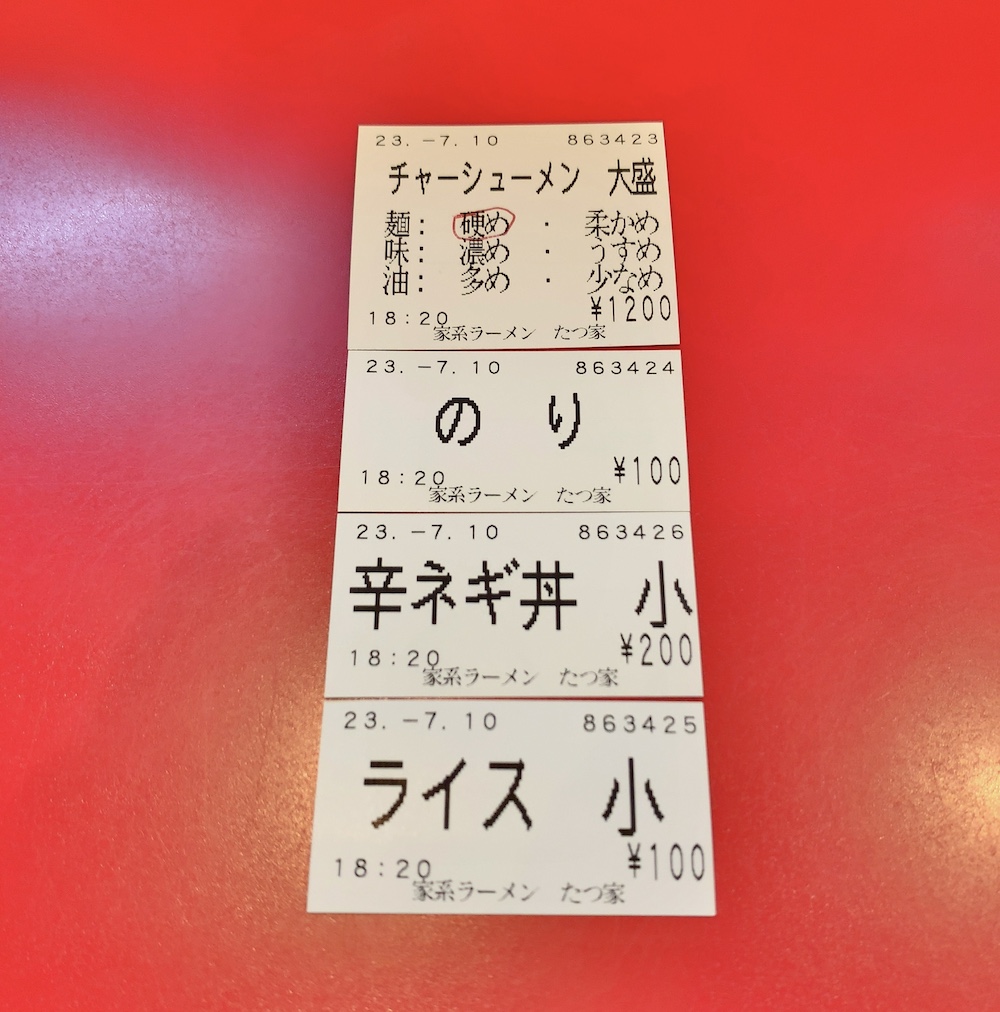 23.-7.10 863423
チャーシューメン 大盛
麺: 硬め ・ 柔かめ
味: 濃め ・ うすめ
油: 多め ・ 少なめ
¥1200
18:20
家系ラーメン たつ家
23.-7.10 863424
のり
¥100
18:20
家系ラーメン たつ家
23.-7.10 863426
辛ネギ丼 小
¥200
18:20
家系ラーメン たつ家
23.-7.10 863425
ライス 小
¥100
18:20
家系ラーメン たつ家